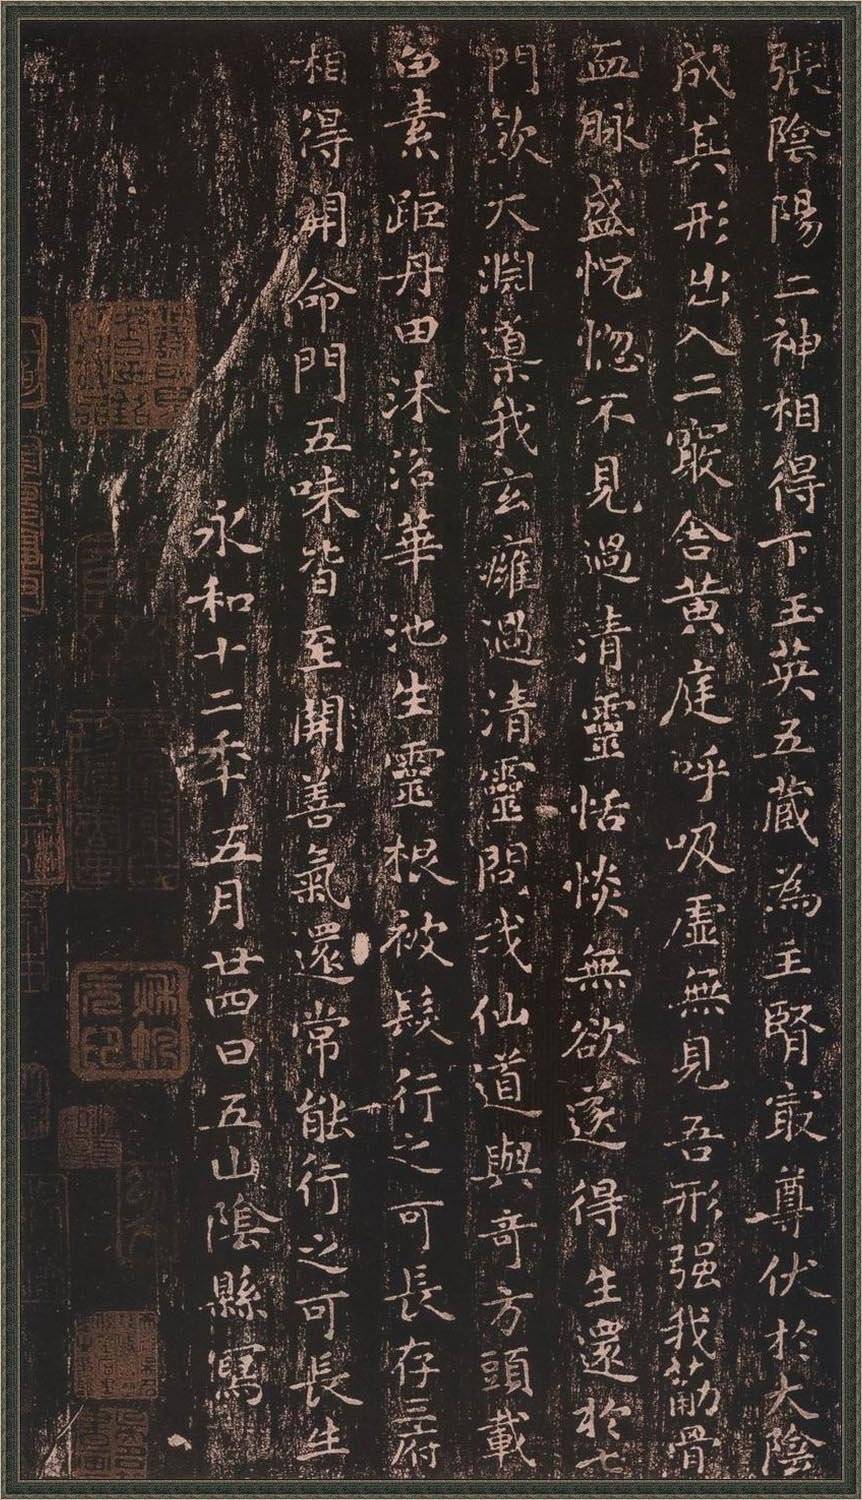 張陰陽二神相得下玉英五藏為主腎冣尊伏於大陰
成其形出入二竅舍黃庭呼吸虛無見吾形强我筋骨
血脉盛怳惚不見過清靈恬惔無欲遂得生還於七
門飲大淵導我玄癰過清靈問我仙道與奇方頭載
白素距丹田沐浴華池生靈根被髮行之可長存三府
相得開命門五味皆至開善氣還常能行之可長生
永和十二年五月廿四日五山陰縣寫